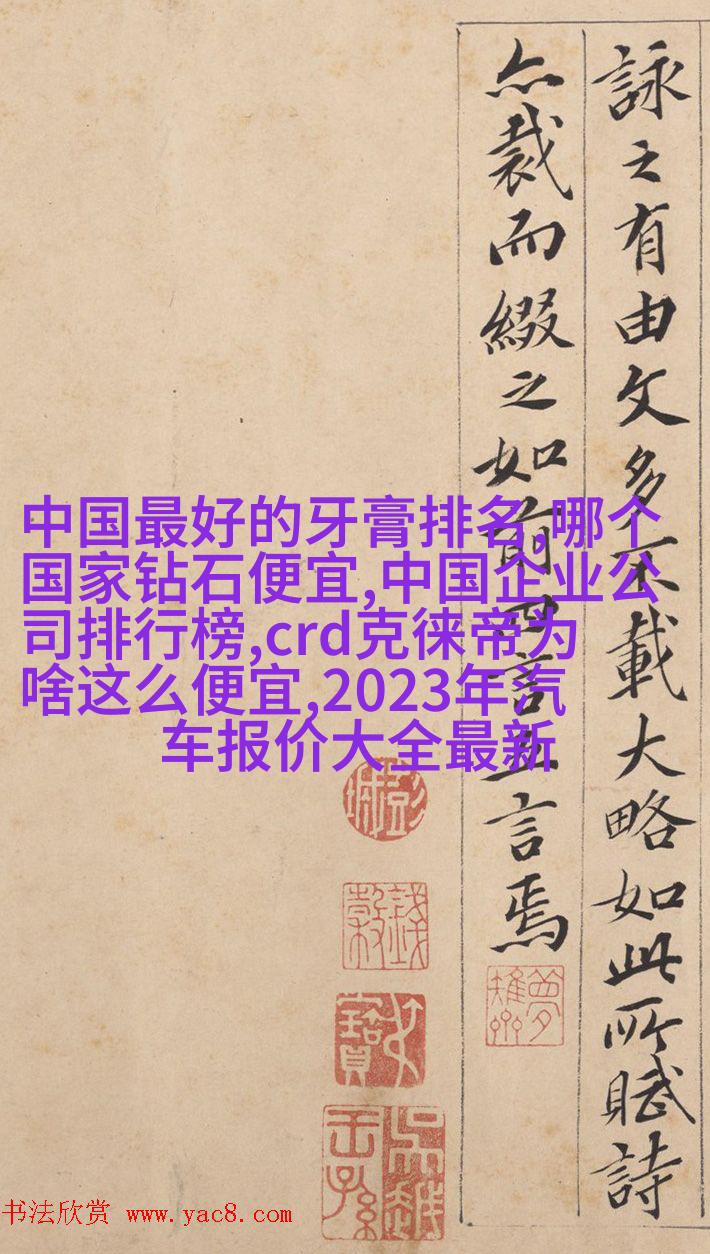 詠之有由文多不載大略如此所賦詩
亦裁而綴之如前四言五言焉
中国最好的牙膏排名,哪个
国家钻石便宜,中国企业公
司排行榜,crd克徕帝为
啥这么便宜,2023年汽
车报价大全最新
书法欣赏 www.yac8.com